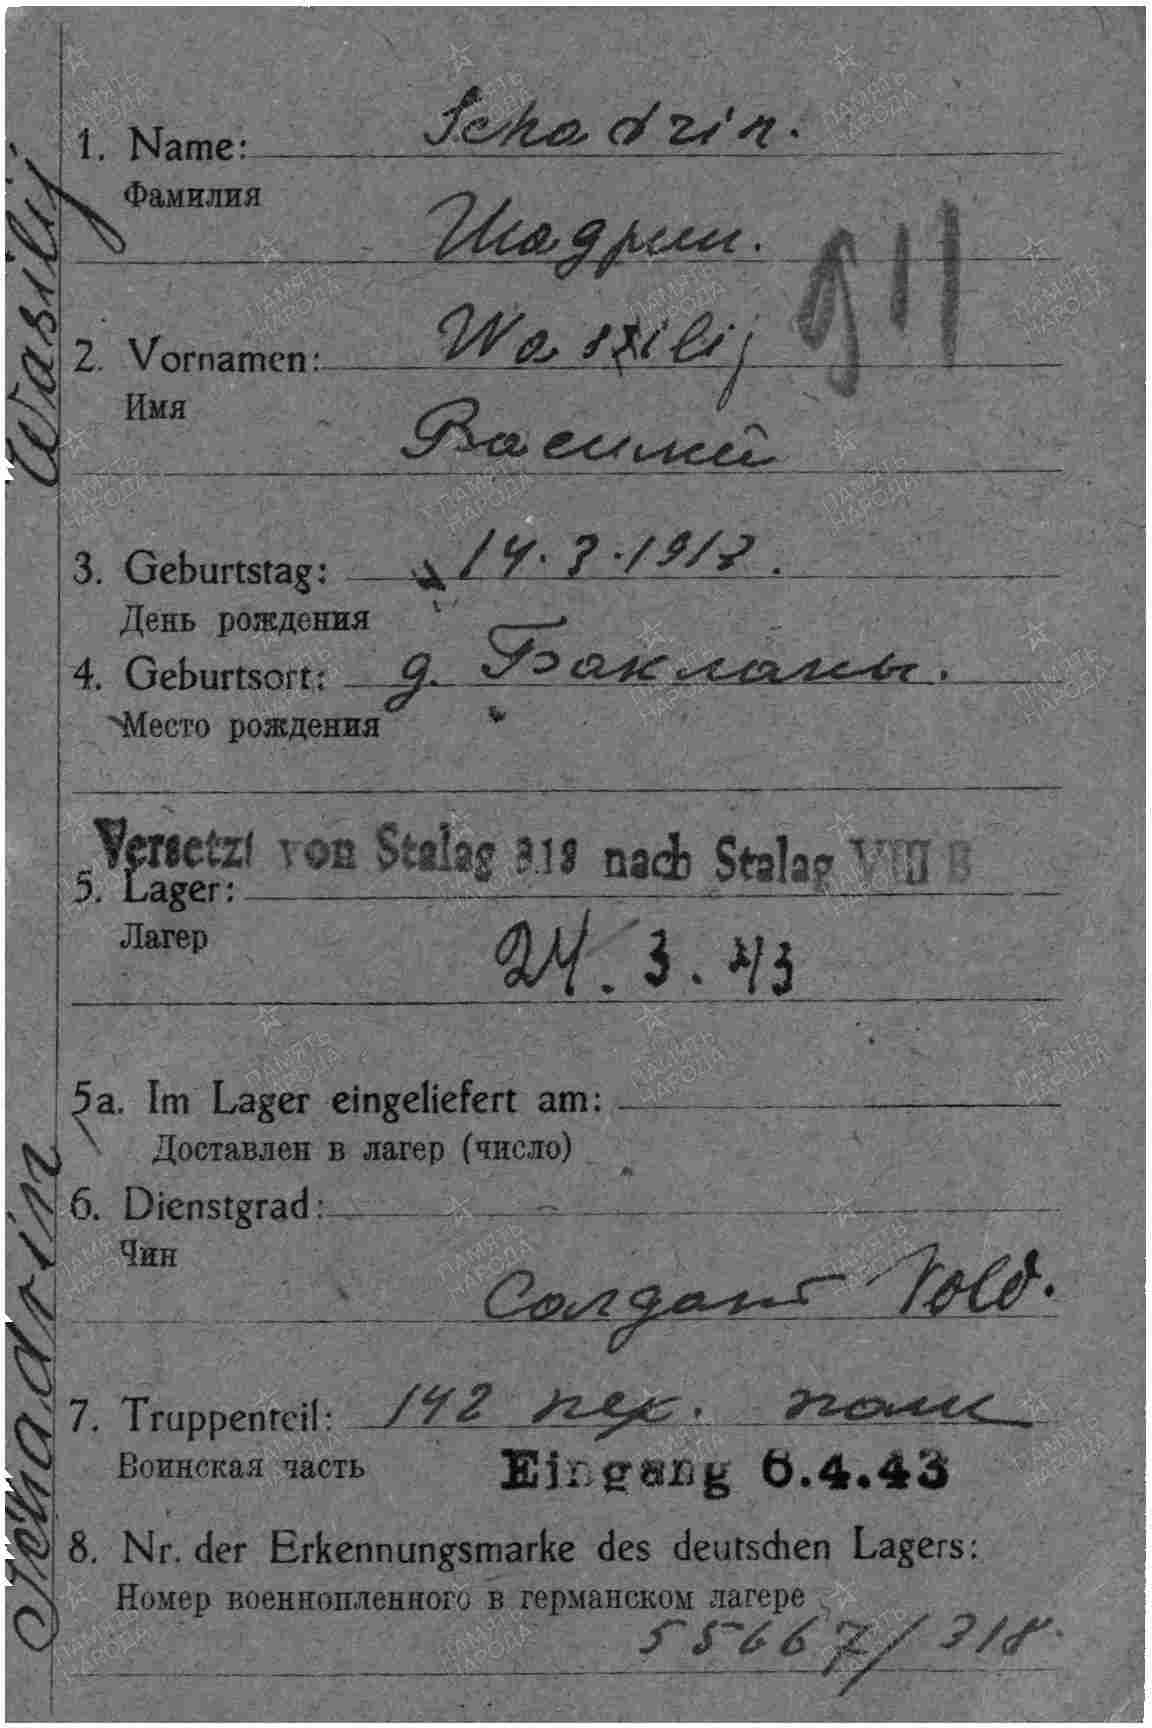 1. Name: Schadrin.
Фамилия
Шадрин.
911
2. Vornamen: Waszilij
Имя
Василий
3. Geburtstag: 14.3.1913.
День рождения
4. Geburtsort: д. Бакланы.
Место рождения
Versetzt von Stalag 318 nach Stalag VIII B
5. Lager:
Лагер
24.3.43
5a. Im Lager eingeliefert am:
Доставлен в лагер (число)
6. Dienstgrad:
Чин
Солдат Sold.
7. Truppenteil: 142 пех. полк
Воинская часть
Eingang 6.4.43
8. Nr. der Erkennungsmarke des deutschen Lagers:
Номер военнопленного в германском лагере
55667/318.
Schadrin Wasilij
ПАМЯТЬ
НАРОДА